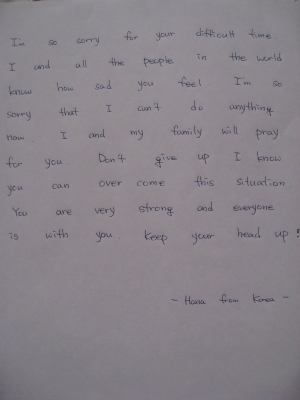 I'm so sorry for your difficult time.
I and all the people in the world
know how sad you feel. I'm so
sorry that I can't do anything
now. I and my family will pray
for you. Don't give up I know
you can over come this situation
You are very strong and everyone
is with you. Keep your head up!
- Hana from Korea -